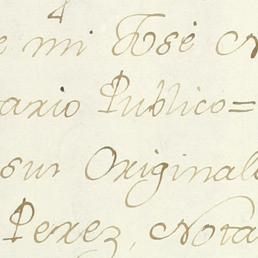 e mi José N
ario Publico=
sus Original
Perez, Nota